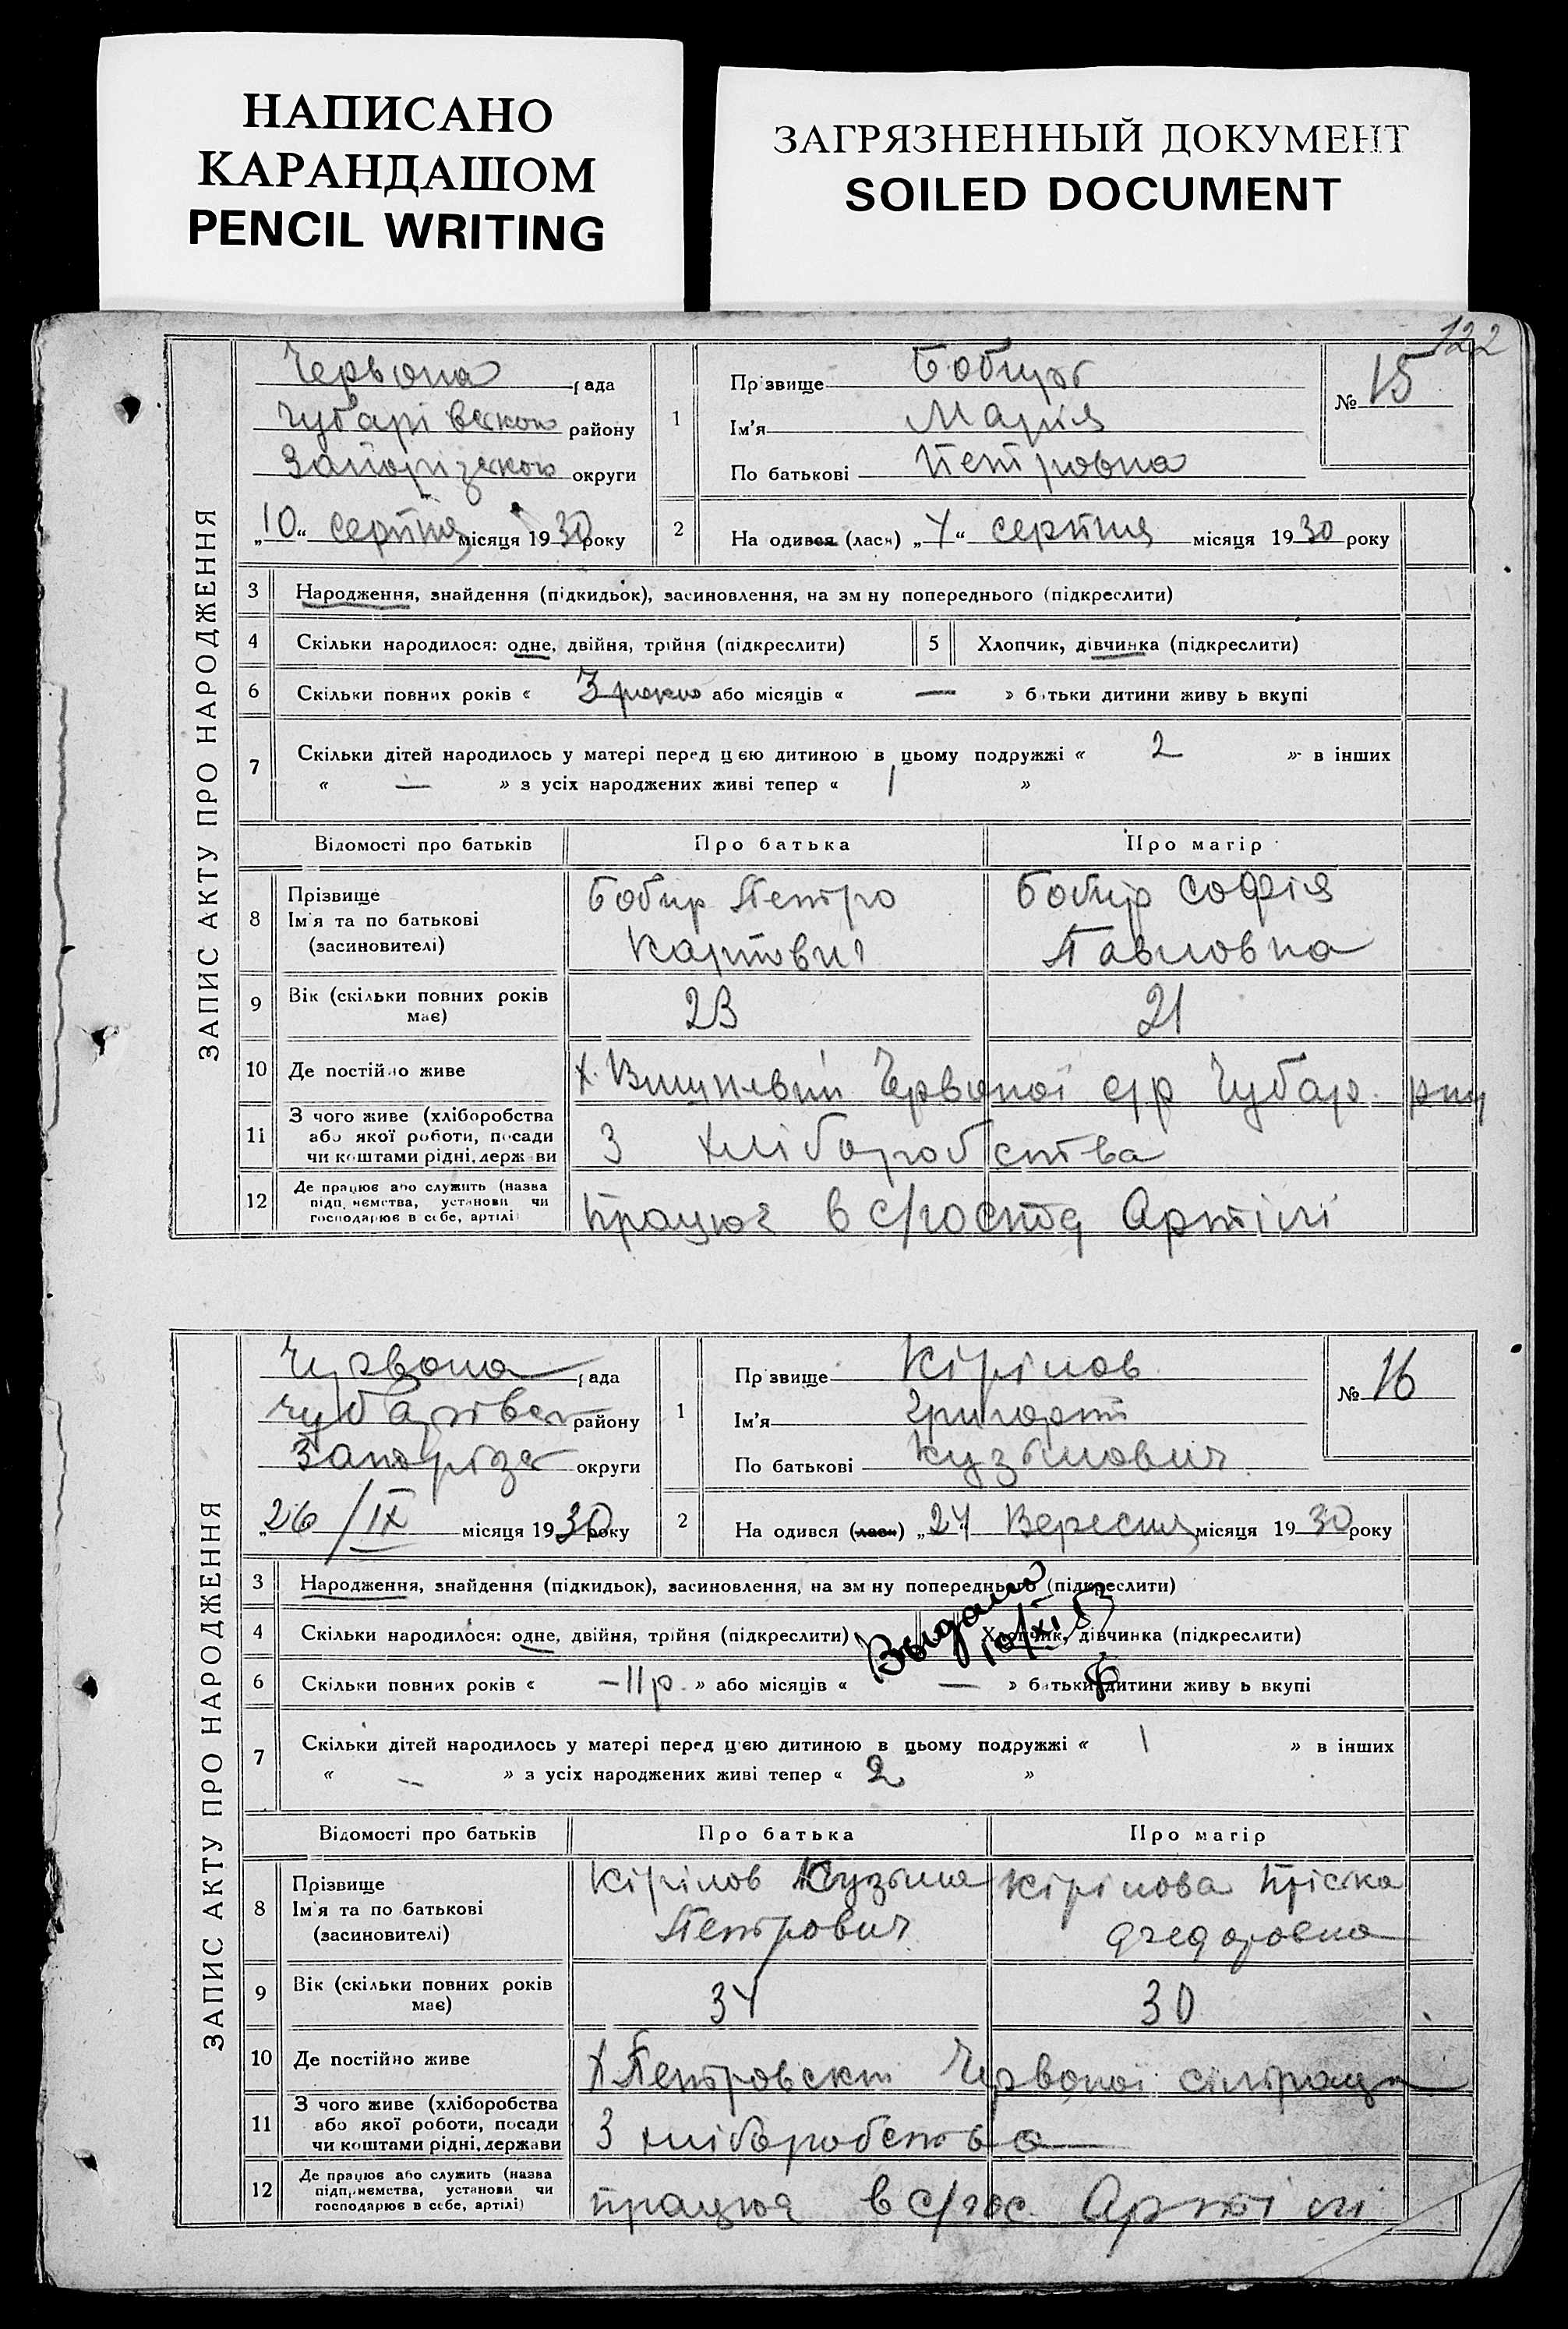 НАПИСАНО
КАРАНДАШОМ
PENCIL WRITING
ЗАГРЯЗНЕННЫЙ ДОКУМЕНТ
SOILED DOCUMENT
122
ЗАПИС АКТУ ПРО НАРОДЖЕННЯ
Червона рада
Чубарівської району
Запорізької округи
„10“ серпня місяця 1930 року
1 Прізвище Бобир
Ім'я Марія
По батькові Петровна
№ 15
2 На одився (лася) „7“ серпня місяця 1930 року
3 Народження, знайдення (підкидьок), засиновлення, на зм ну попереднього (підкреслити)
4 Скільки народилося: одне, двійня, трійня (підкреслити) 5 Хлопчик, дівчинка (підкреслити)
6 Скільки повних років « 3 роки або місяців « — » батьки дитини живу ь вкупі
7 Скільки дітей народилось у матері перед цією дитиною в цьому подружжі « 2 » в інших
« — » з усіх народжених живі тепер « 1 »
Відомості про батьків Про батька Про матір
8 Прізвище Ім'я та по батькові (засиновителі) Бобир Петро Бобир Софія
Карпович Павловна
9 Вік (скільки повних років має) 23 21
10 Де постійно живе х. Вишневий Червоної с/р Чубар. р-ну
11 З чого живе (хліборобства або якої роботи, посади чи коштами рідні, держави З хліборобства
12 Де працює або служить (назва підприємства, установи чи господарює в себе, артілі) працює в с/господ Артілі
ЗАПИС АКТУ ПРО НАРОДЖЕННЯ
Червона рада
Чубарівсь району
Запорізь округи
„26/IX місяця 1930 року
1 Прізвище Кірілов
Ім'я Григорій
По батькові Кузьмович
№ 16
2 На одився (лася) „24“ Вересня місяця 1930 року
3 Народження, знайдення (підкидьок), засиновлення, на зм ну попереднього (підкреслити)
4 Скільки народилося: одне, двійня, трійня (підкреслити) Хлопчик, дівчинка (підкреслити)
Выдано
10/XI
6 Скільки повних років « – 11 р. » або місяців « — » батьки дитини живу ь вкупі
7 Скільки дітей народилось у матері перед цією дитиною в цьому подружжі « 1 » в інших
« — » з усіх народжених живі тепер « 2 »
Відомості про батьків Про батька Про матір
8 Прізвище Ім'я та по батькові (засиновителі) Кірілов Кузьма Кірілова Пріська
Петрович Фгедоровна
9 Вік (скільки повних років має) 34 30
10 Де постійно живе х Петровскій Червоної сільради
11 З чого живе (хліборобства або якої роботи, посади чи коштами рідні, держави З хліборобства
12 Де працює або служить (назва підприємства, установи чи господарює в себе, артілі) працює в с/гос. Артілі